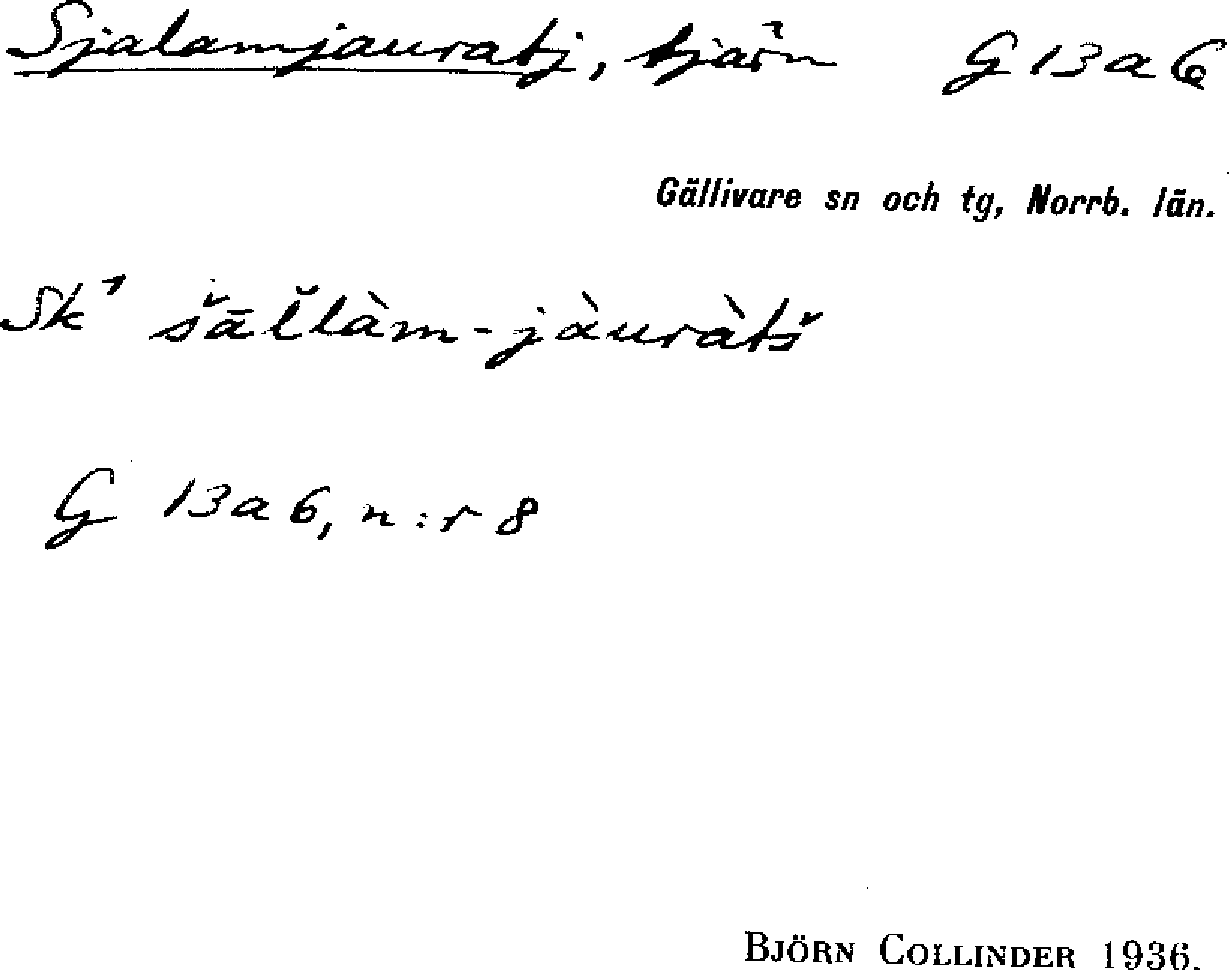 Sjalamjauratj, tjärn G 13 a 6
Gällivare sn och tg, Norrb. län.
Sk¹ šāl̆làm-jàuràtš
G 13 a 6, n:r 8
BJÖRN COLLINDER 1936.